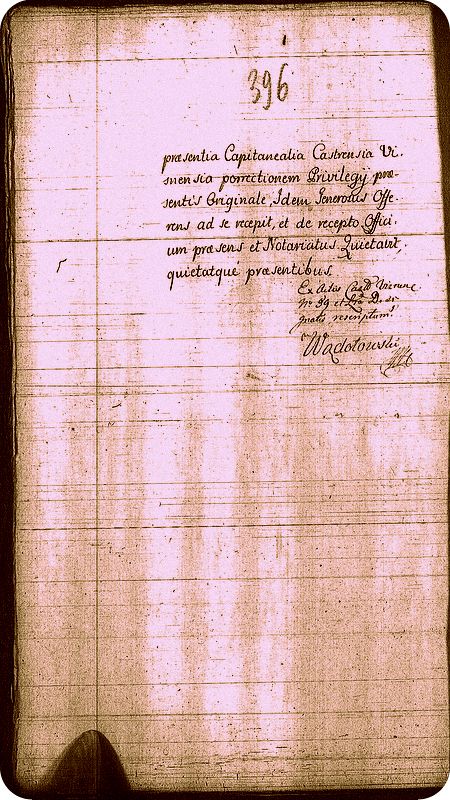 396
præsentia Capitanealia Castrensia Vi-
snensia porrectionem Privilegy præ-
sentis Originale, Idem Generosus Offe-
rens ad se recepit, et de recepto Offici-
um præsens et Notariatus Quietavit,
quietatque præsentibus
Ex Actis
No 39 et Lra D. si-
gnatis rescriptum
Wadołowski